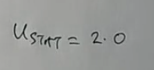 U_STAT = 2.0